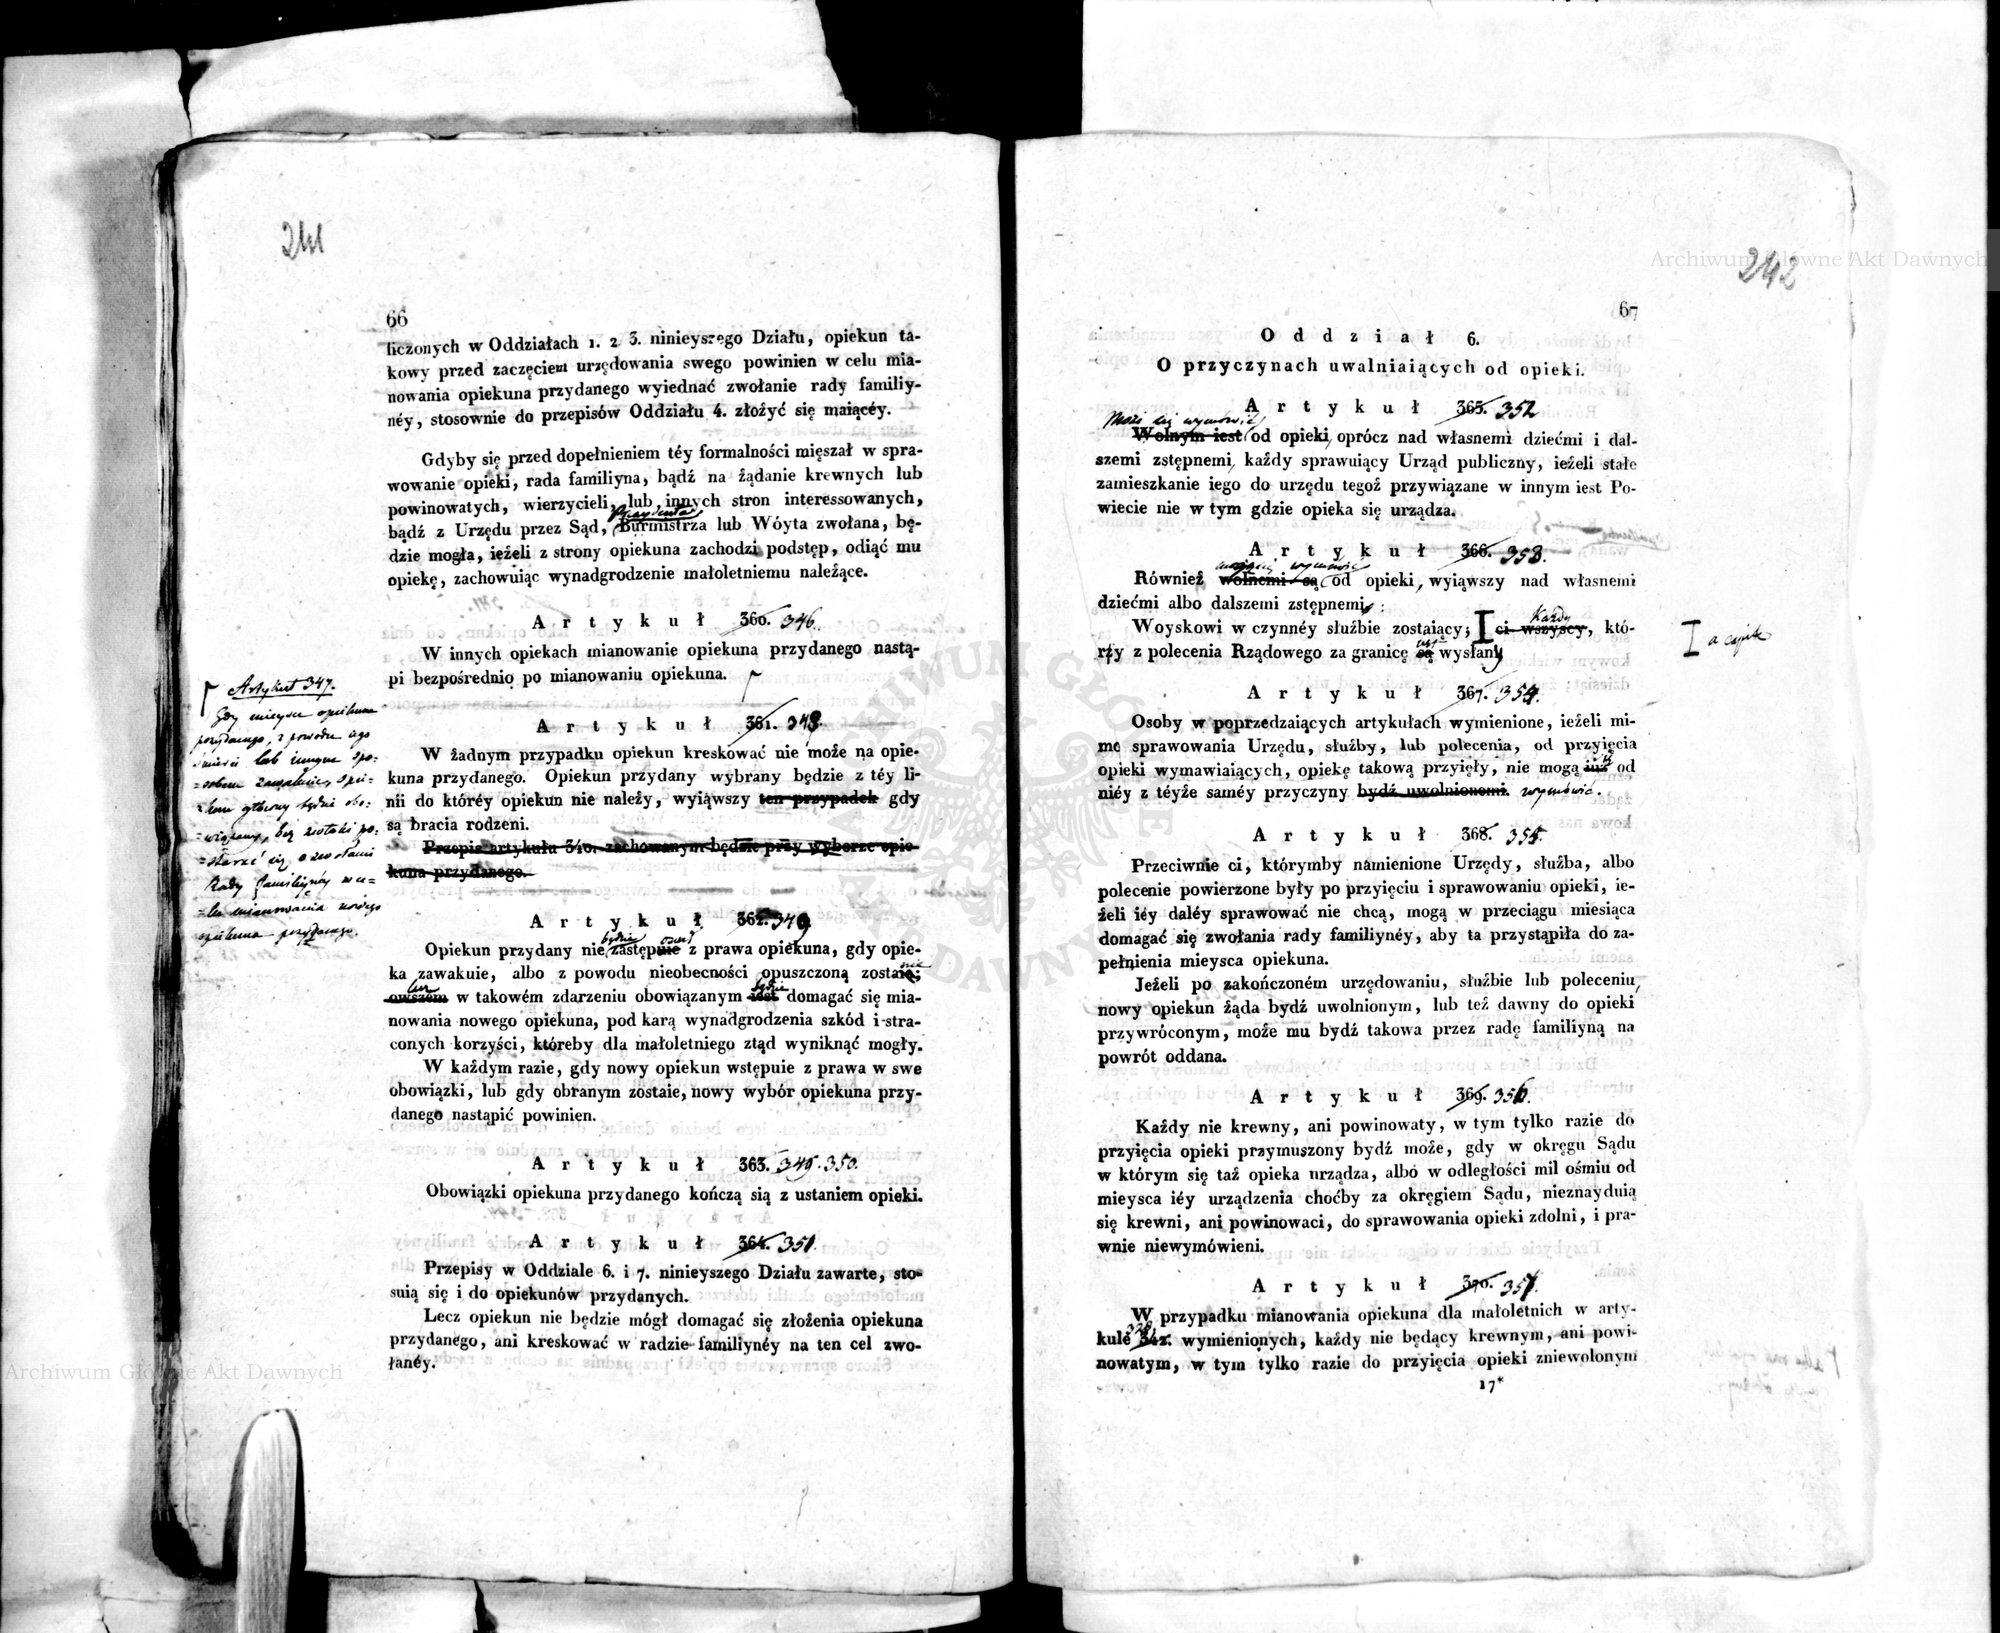 241
66
liczonych w Oddziałach 1. 2 3. ninieyszego Działu, opiekun ta-
kowy przed zaczęciem urzędowania swego powinien w celu mia-
nowania opiekuna przydanego wyiednać zwołanie rady familiy-
néy, stosownie do przepisów Oddziału 4. złożyć się maiącéy.
Gdyby się przed dopełnieniem téy formalności mięszał w spra-
wowanie opieki, rada familiyna, bądź na żądanie krewnych lub
powinowatych, wierzycieli, lub innych stron interessowanych,
Prezydenta
bądź z Urzędu przez Sąd, Burmistrza lub Wóyta zwołana, bę-
dzie mogła, ieżeli z strony opiekuna zachodzi podstęp, odiąć mu
opiekę, zachowuiąc wynadgrodzenie małoletniemu należące.
Artykuł 360. 346.
W innych opiekach mianowanie opiekuna przydanego nastą-
pi bezpośrednio po mianowaniu opiekuna.
Artykuł 347.
Gdy mieysce opiekuna
przydanego, z powodu iego
śmierci lub innym spo-
sobem zawakuie, opie-
kun główny będzie obo-
wiązany, bez zwłoki po-
starać się o zwołanie
Rady Familiynéy w ce-
lu mianowania nowego
opiekuna przydanego.
Artykuł 361. 348.
W żadnym przypadku opiekun kreskować nie może na opie-
kuna przydanego. Opiekun przydany wybrany będzie z téy li-
nii do któréy opiekun nie należy, wyiąwszy ten przypadek gdy
są bracia rodzeni.
Przepis artykułu 340. zachowanym będzie przy wyborze opie-
kuna przydanego.
Artykuł 362. 349
będzie
Opiekun przydany nie zastępuie z prawa opiekuna, gdy opie-
ka zawakuie, albo z powodu nieobecności opuszczoną zostaie;
lecz będzie
owszem w takowém zdarzeniu obowiązanym iest domagać się mia-
nowania nowego opiekuna, pod karą wynadgrodzenia szkód i stra-
conych korzyści, któreby dla małoletniego ztąd wyniknąć mogły.
W każdym razie, gdy nowy opiekun wstępuie z prawa w swe
obowiązki, lub gdy obranym zostaie, nowy wybór opiekuna przy-
danego nastąpić powinien.
Artykuł 363. 349. 350.
Obowiązki opiekuna przydanego kończą sią z ustaniem opieki.
Artykuł 364. 351.
Przepisy w Oddziale 6. i 7. ninieyszego Działu zawarte, sto-
suią się i do opiekunów przydanych.
Lecz opiekun nie będzie mógł domagać się złożenia opiekuna
przydanego, ani kreskować w radzie familiynéy na ten cel zwo-
łanéy.
242
67
Oddział 6.
O przyczynach uwalniaiących od opieki.
Artykuł 365. 352
Może się wymówić
Wolnym iest od opieki, oprócz nad własnemi dziećmi i dal-
szemi zstępnemi, każdy sprawuiący Urząd publiczny, ieżeli stałe
zamieszkanie iego do urzędu tegoż przywiązane w innym iest Po-
wiecie nie w tym gdzie opieka się urządza.
Artykuł 366. 353.
mogą się wymówić
Również wolnemi są od opieki, wyiąwszy nad własnemi
dziećmi albo dalszemi zstępnemi:
Każdy
Woyskowi w czynnéy służbie zostaiący; ci wszyscy, któ-
iest
rzy z polecenia Rządowego za granicę są wysłany
Artykuł 367. 354.
Osoby w poprzedzaiących artykułach wymienione, ieżeli mi-
mo sprawowania Urzędu, służby, lub polecenia, od przyięcia
opieki wymawiaiących, opiekę takową przyięły, nie mogą iuż od
niéy z téyże saméy przyczyny bydź uwolnionemi. wymówić.
Artykuł 368. 355.
Przeciwnie ci, którymby namienione Urzędy, służba, albo
polecenie powierzone były po przyięciu i sprawowaniu opieki, ie-
żeli iéy daléy sprawować nie chcą, mogą w przeciągu miesiąca
domagać się zwołania rady familiynéy, aby ta przystąpiła do za-
pełnienia mieysca opiekuna.
Jeżeli po zakończoném urzędowaniu, służbie lub poleceniu,
nowy opiekun żąda bydź uwolnionym, lub też dawny do opieki
przywróconym, może mu bydź takowa przez radę familiyną na
powrót oddana.
Artykuł 369. 356.
Każdy nie krewny, ani powinowaty, w tym tylko razie do
przyięcia opieki przymuszony bydź może, gdy w okręgu Sądu
w którym się taż opieka urządza, albo w odległości mil ośmiu od
mieysca iéy urządzenia choćby za okręgiem Sądu, nieznayduią
się krewni, ani powinowaci, do sprawowania opieki zdolni, i pra-
wnie niewymówieni.
Artykuł 370. 357.
W przypadku mianowania opiekuna dla małoletnich w arty-
kule 342. wymienionych, każdy nie będący krewnym, ani powi-
nowatym, w tym tylko razie do przyięcia opieki zniewolonym
17*
Archiwum Główne Akt Dawnych
Archiwum Główne Akt Dawnych
ARCHIWUM GŁÓWNE AKT DAWNYCH